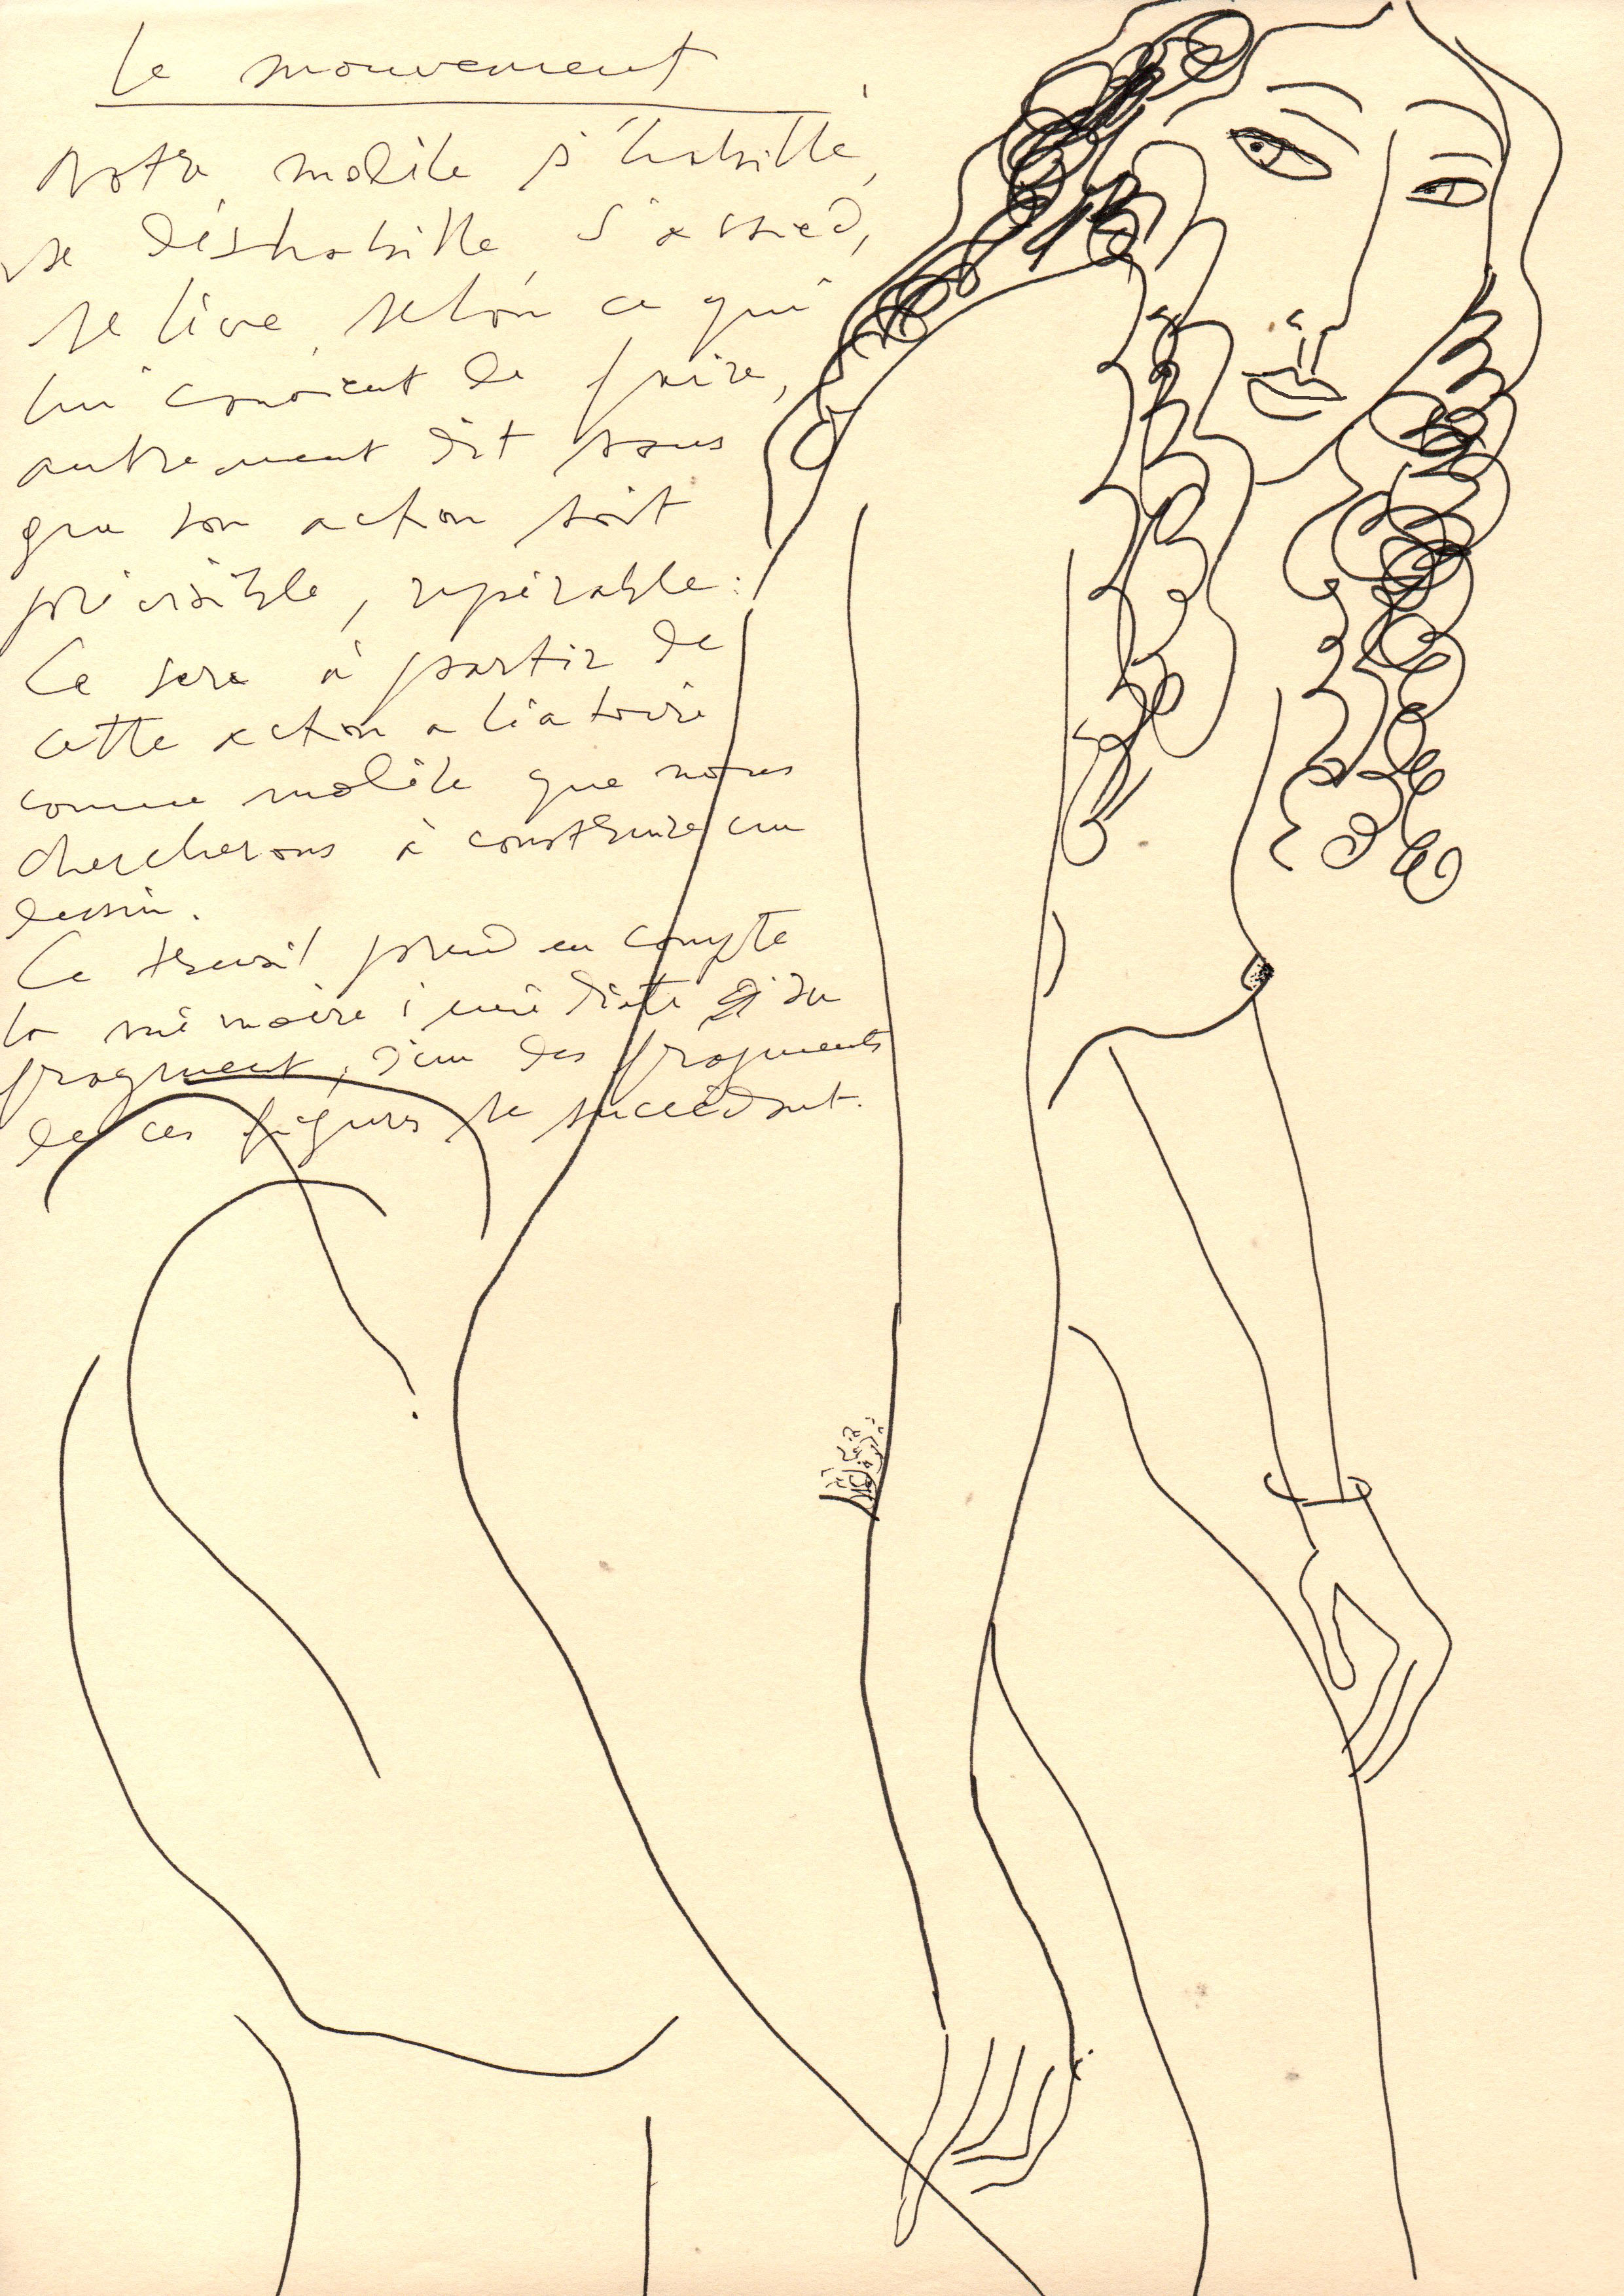 Le mouvement
Notre modèle s'habille,
se déshabille, s'assied,
se lève, selon ce qui
lui convient de faire,
autrement dit sans
que son action soit
prévisible, repérable :
Ce sera à partir de
cette action aléatoire
comme modèle que nous
chercherons à construire un
dessin.
Ce travail prend en compte
la mémoire immédiate du
fragment, d'un des fragments
de ces figures se succédant.